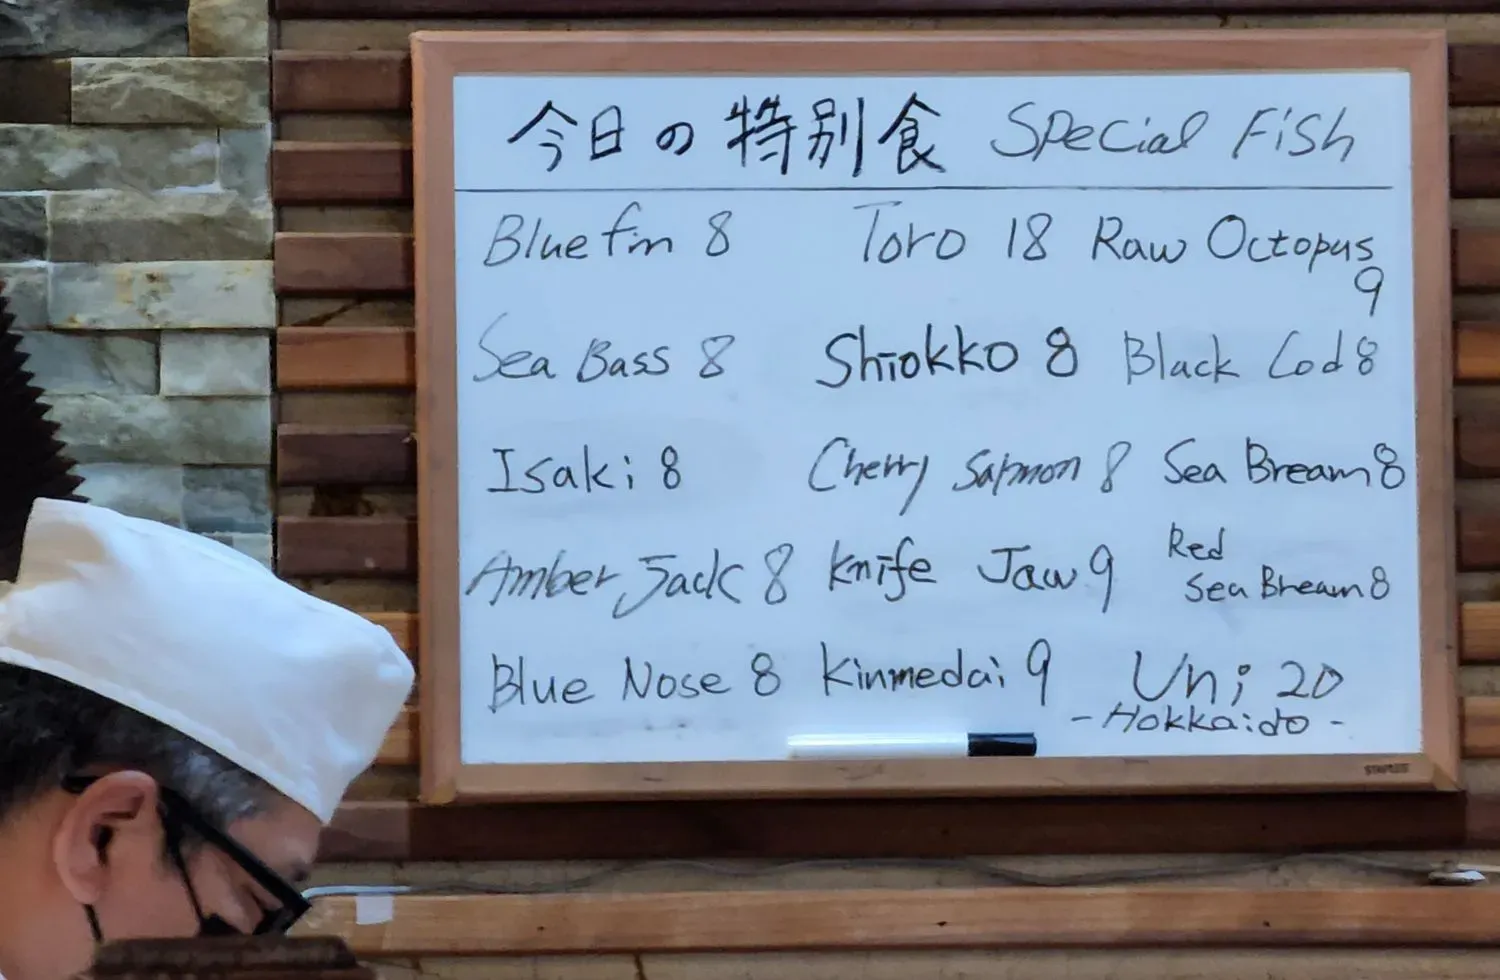 今日の特別食 Special Fish
Bluefin 8 Toro 18 Raw Octopus
9
Sea Bass 8 Shiokko 8 Black Cod 8
Isaki 8 Cherry Salmon 8 Sea Bream 8
Amber Jack 8 Knife Jaw 9 Red
Sea Bream 8
Blue Nose 8 Kinmedai 9 Uni 20
- Hokkaido -
STAPLES